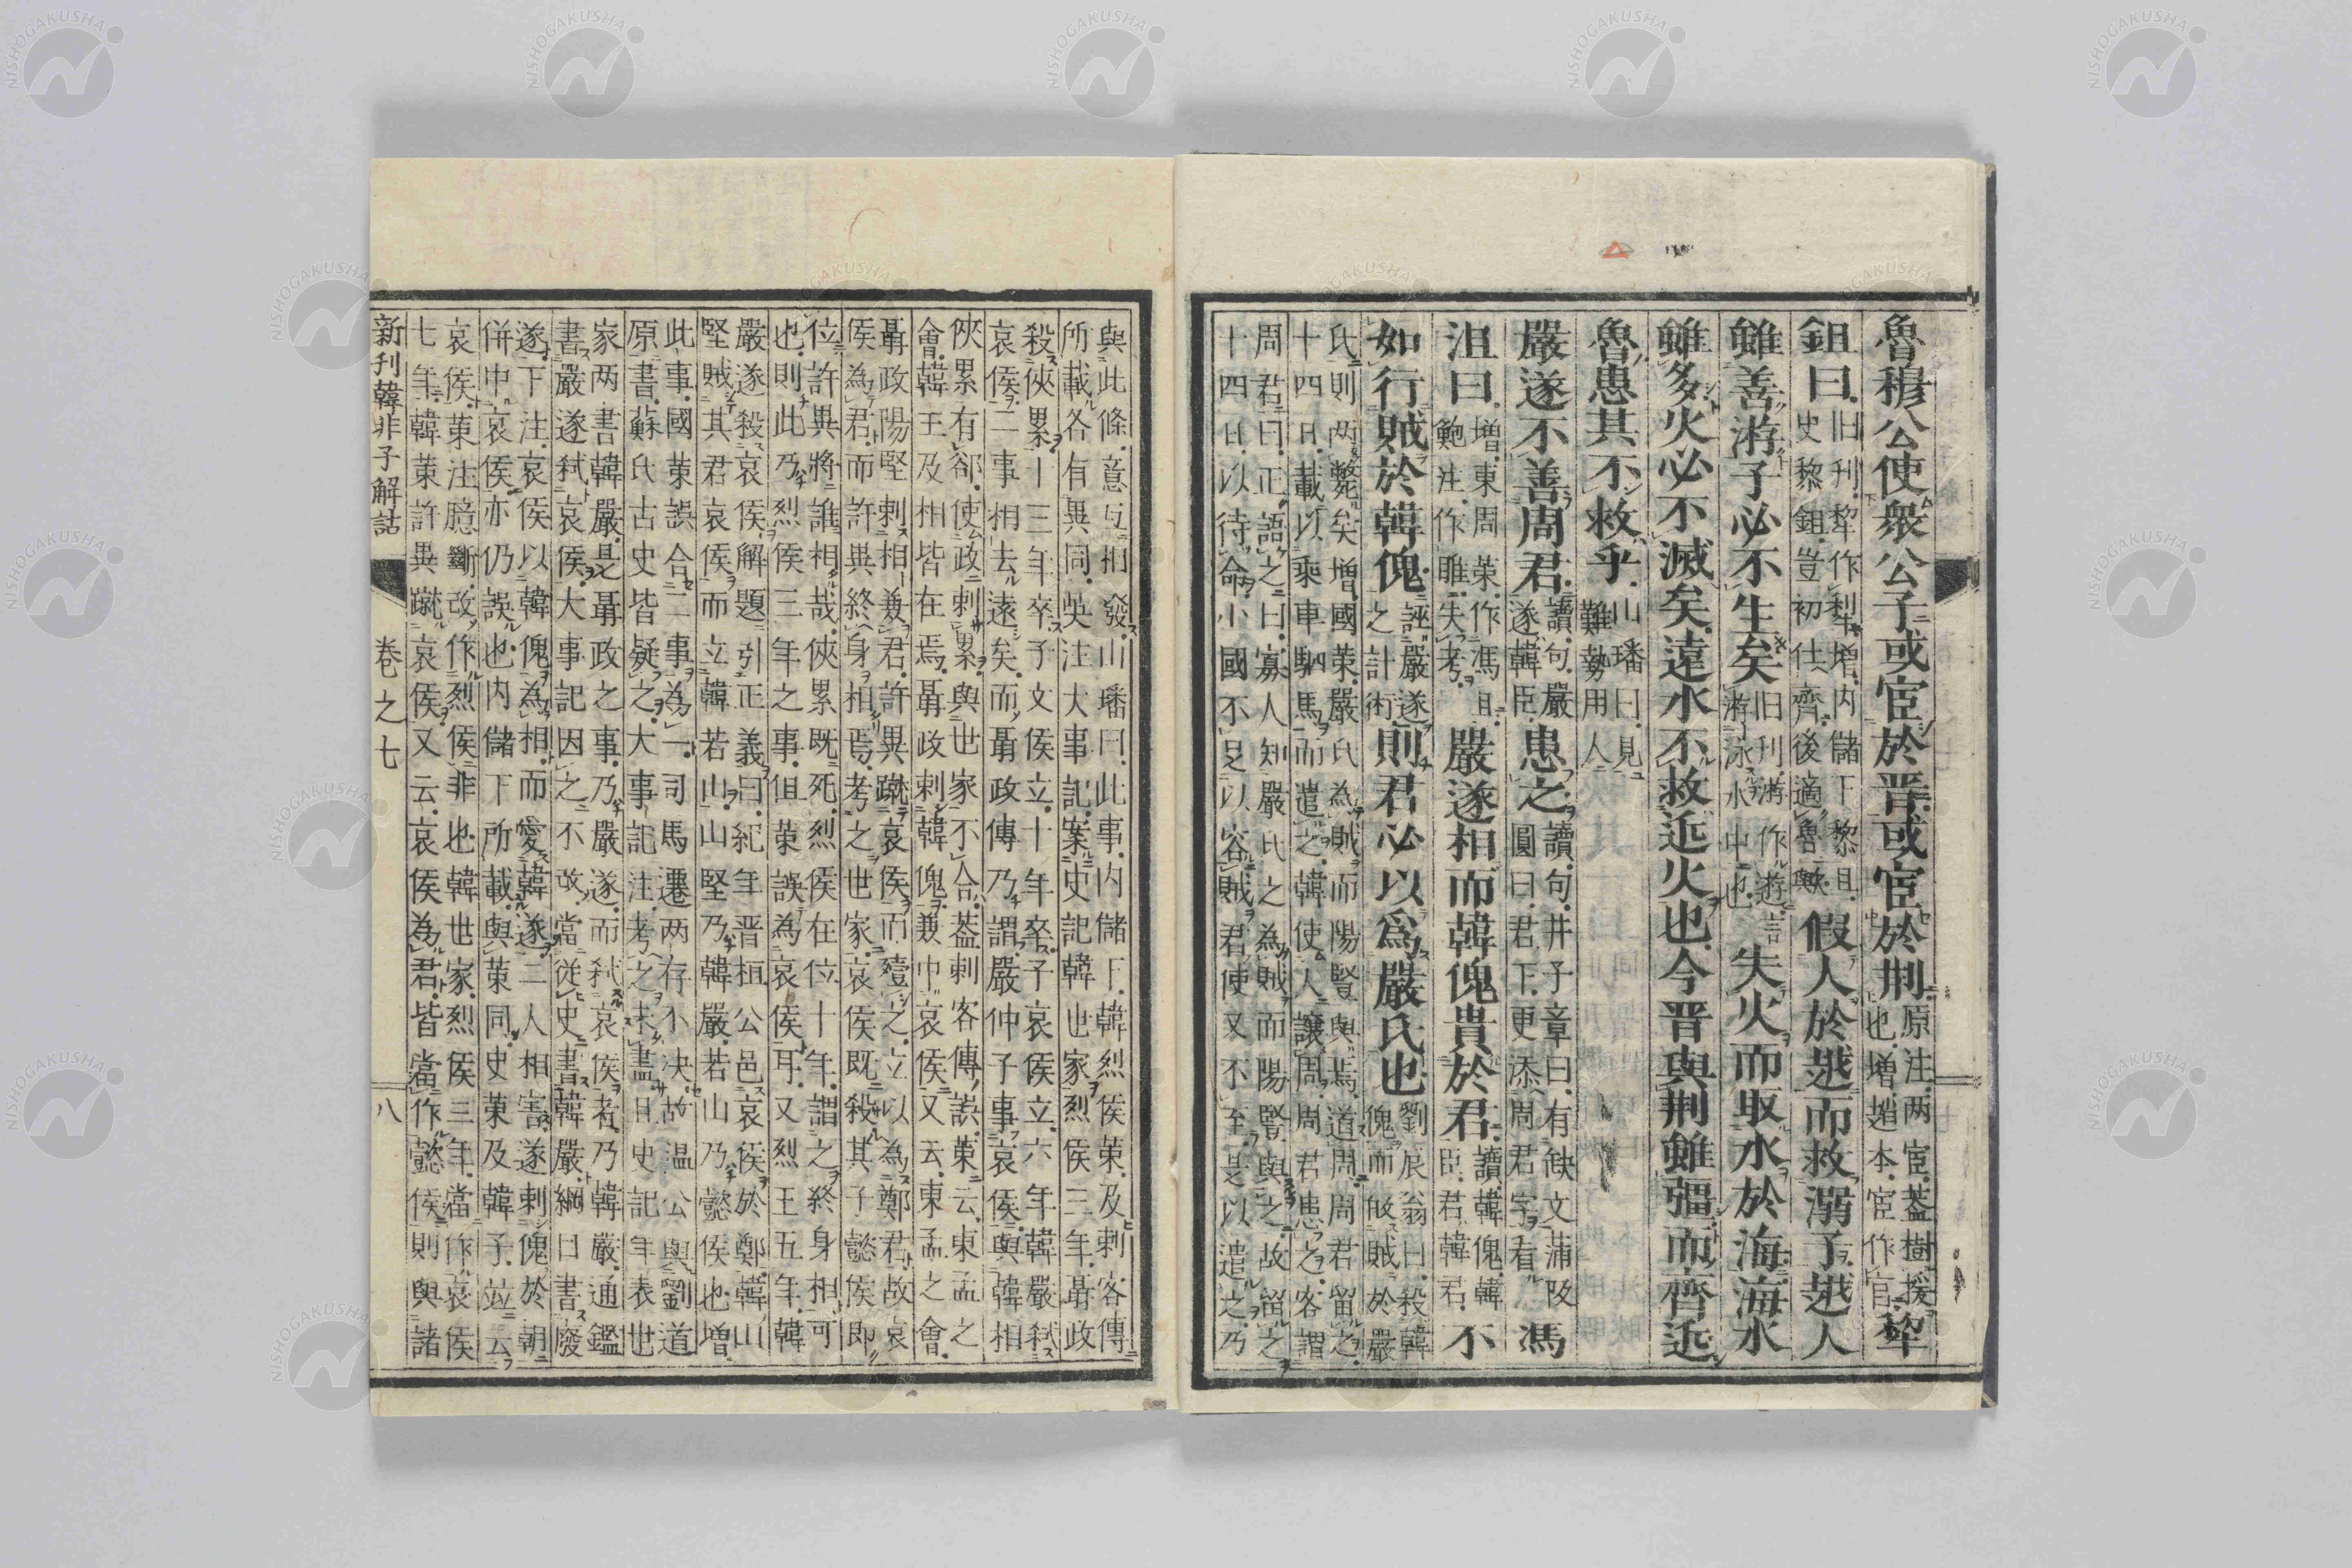 魯穆公使衆公子或宦於晋或宦於荆原注两宦葢樹援也増趙本宦作官犂
鉏曰旧刋犂作犁増内儲下黎且史黎鉏豈初仕齊後適魯歟假人於越而救溺子越人
雖善游子必不生矣旧刋游作遊言游泳水中也失火而取水於海海水
雖多火必不滅矣遠水不救近火也今晋與荆雖彊而齊近
魯患其不救乎山璠曰見難勢用人
嚴遂不善周君讀句嚴遂韓臣患之讀句井子章曰有缺文蒲阪圓曰君下更添周君字看馮
沮曰増東周策作馮且鮑注作雎失考嚴遂相而韓傀貴於君讀韓傀韓臣君韓君不
如行賊於韓傀誣嚴遂之計術則君必以爲嚴氏也劉辰翁曰殺韓傀而賊於嚴
氏則两斃矣増國策嚴氏為賊而陽竪與焉道周周君留之
十四日載以乘車駟馬而遣之韓使人讓周周君患之客謂
周君曰正語之曰寡人知嚴氏之為賊而陽竪與之故留之
十四日以待命小國不足以容賊君使又不至是以遣之乃
與此條意互相發山璠曰此事内儲下韓烈侯策及刺客傳
所載各有異同吳注大事記案史記韓世家烈侯三年聶政
殺俠累十三年卒子文侯立十年卒子哀侯立六年韓嚴弑
哀侯二事相去遠矣而聶政傳乃謂嚴仲子事哀侯與韓相
俠累有郤使政刺累與世家不合葢刺客傳誤策云東孟之
會韓王及相皆在焉聶政刺韓傀兼中哀侯又云東孟之會
聶政陽堅刺相兼君許異蹴哀侯而殪之立以為鄭君故哀
侯為君而許異終身相焉考之世家哀侯既殺其子懿侯即
位許異將誰相哉俠累既死烈侯在位十年謂之終身相可
也則此乃烈侯三年之事但策誤為哀侯耳又烈王五年韓
嚴遂殺哀侯解題引正義曰紀年晋桓公邑哀侯於鄭韓山
堅賊其君哀侯而立韓若山山堅乃韓嚴若山乃懿侯也増
此事國策誤合二事為一司馬遷两存不决故温公與劉道
原書蘇氏古史皆疑之大事記注考之未盡且史記年表世
家两書韓嚴是聶政之事乃嚴遂而弑哀侯者乃韓嚴通鑑
書嚴遂弑哀侯大事記因之不改當從史書韓嚴綱目書廢
遂下注哀侯以韓傀為相而愛韓遂二人相害遂刺傀於朝
併中哀侯亦仍誤也内儲下所載與策同史策及韓子竝云
哀侯策注臆斷改作烈侯非也韓世家烈侯三年當作哀侯
七年韓策許異蹴哀侯又云哀侯為君皆當作懿侯則與諸
新刊韓非子解詁 卷之七 八
NISHOGAKUSHA